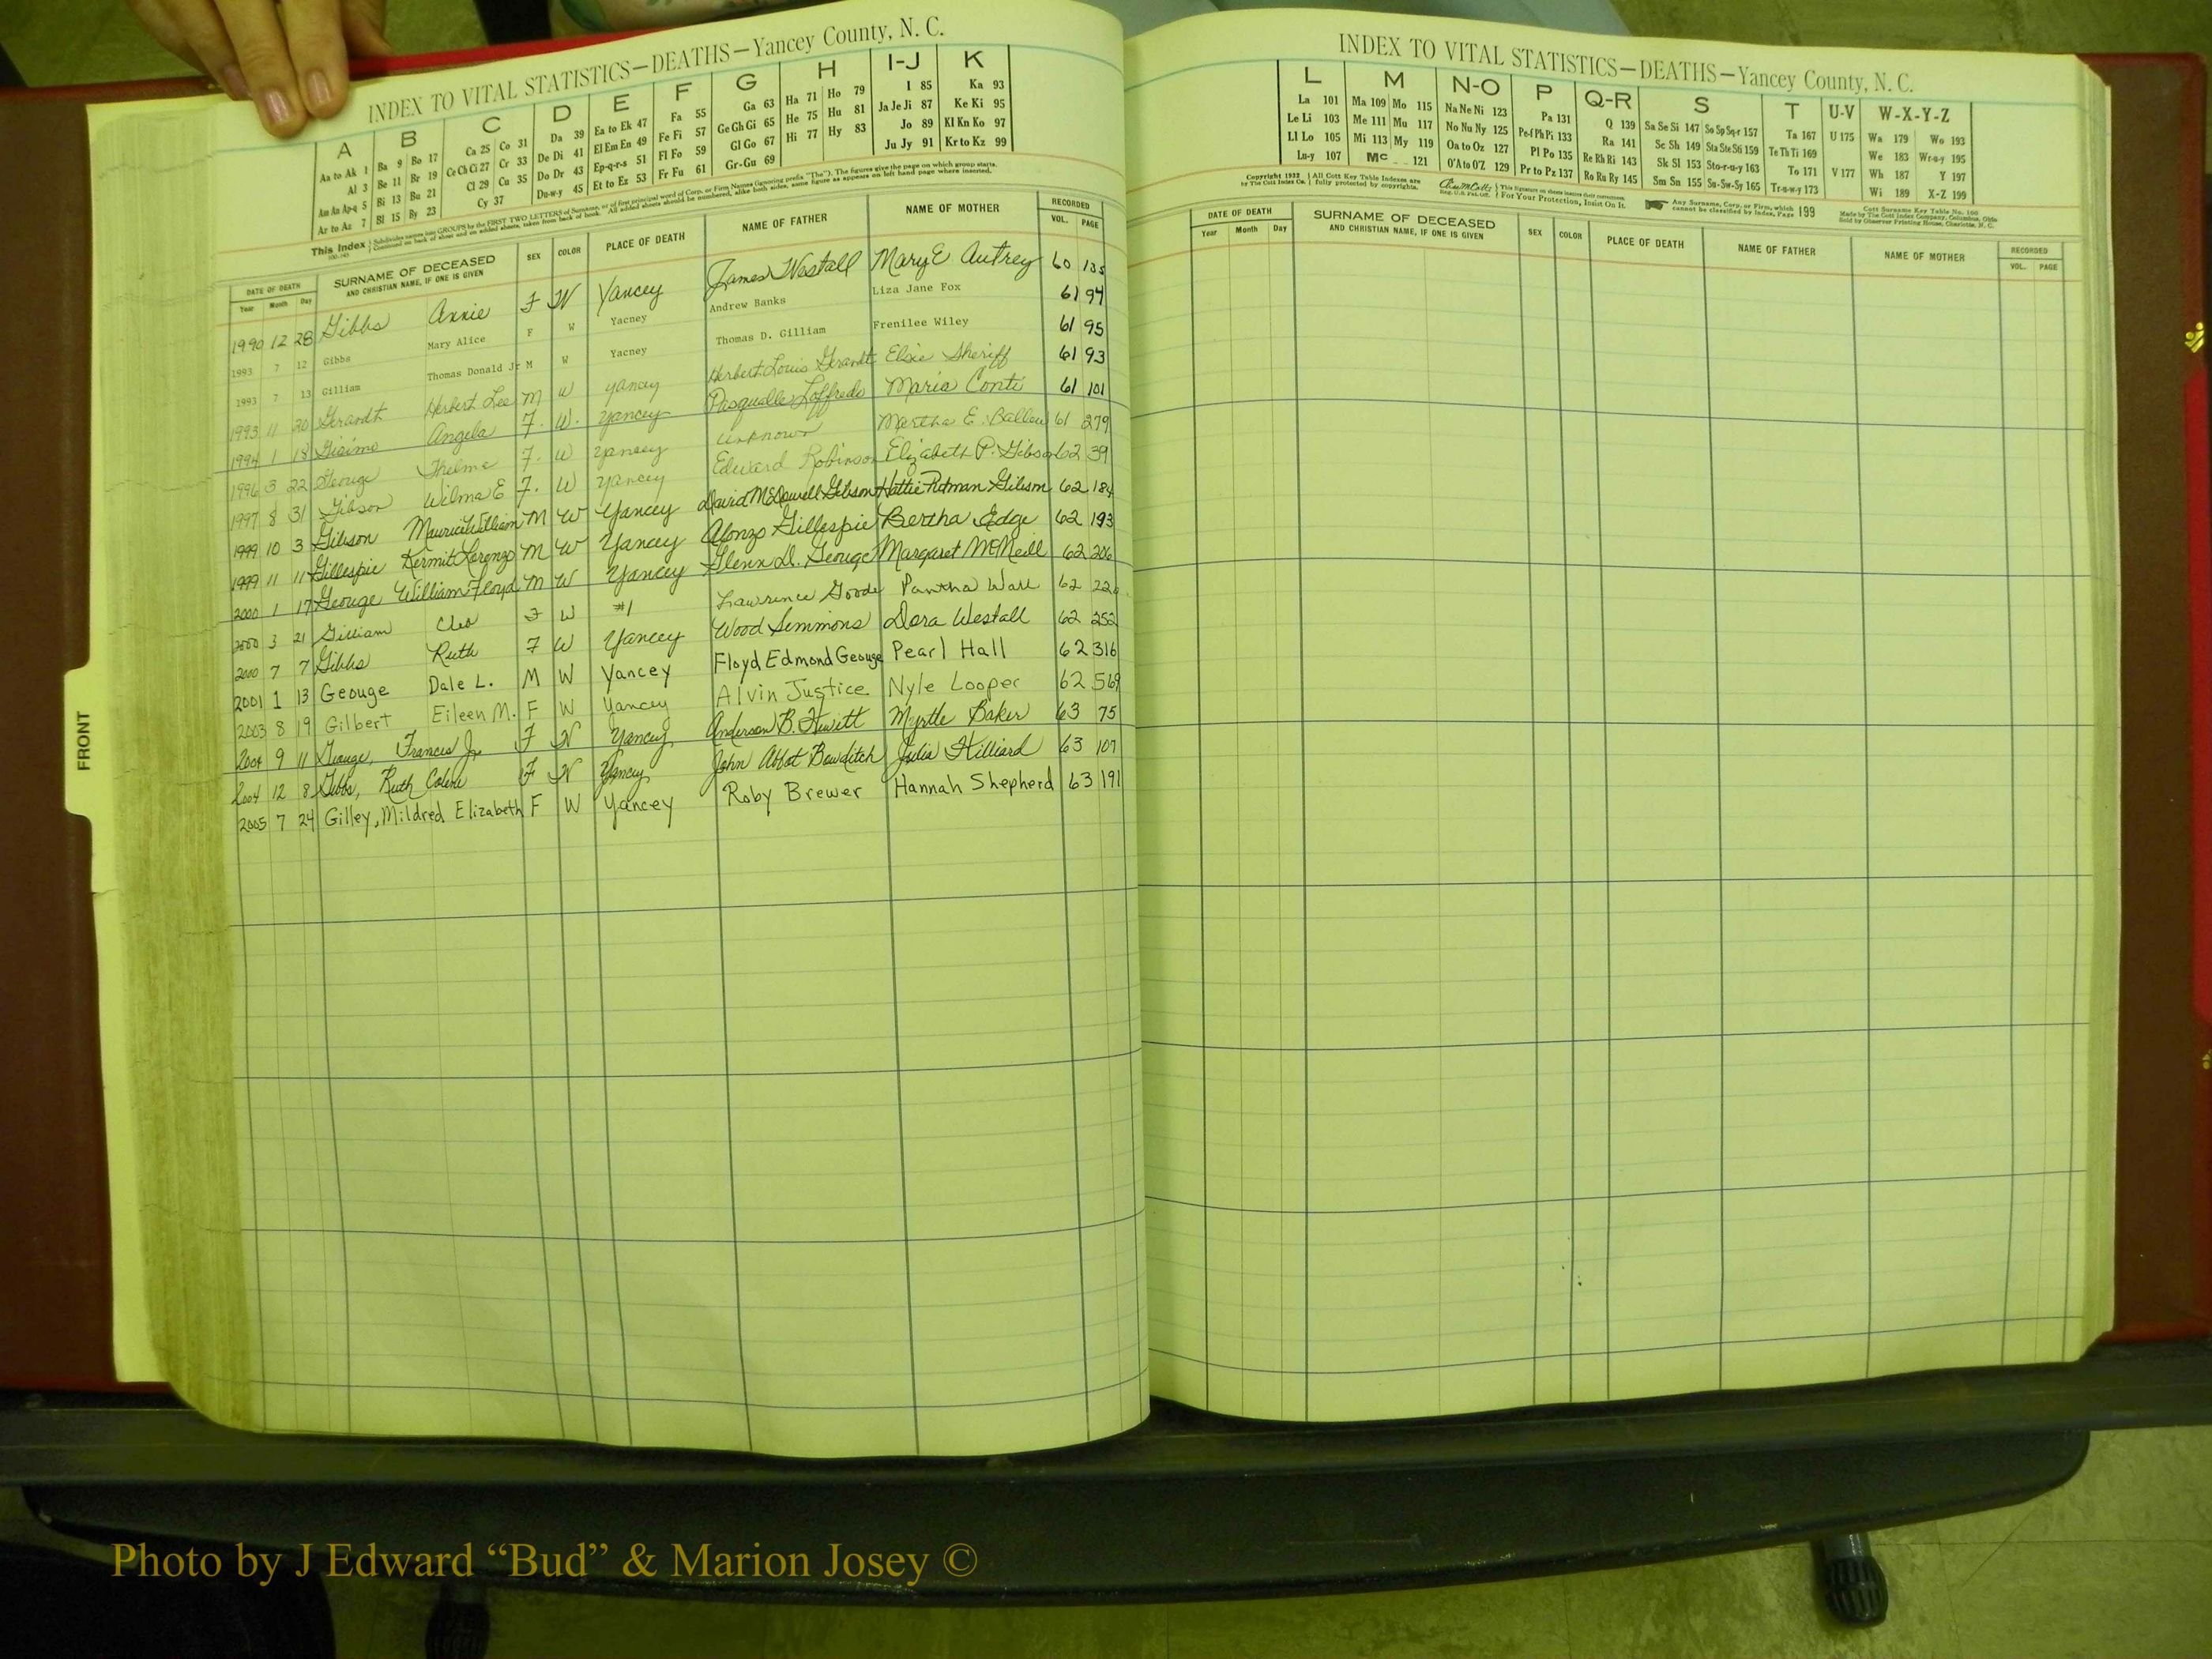 INDEX TO VITAL STATISTICS—DEATHS—Yancey County, N. C.
A B C D E F G H I-J K
Aa to Ak 1 Ba 9 Bo 17 Ca 25 Co 31 Da 39 Ea to Ek 47 Fa 55 Ga 63 Ha 71 Ho 79 I 85 Ka 93
Al 3 Be 11 Br 19 Ce Ch Ci 27 Cr 33 De Di 41 El Em En 49 Fe Fi 57 Ge Gh Gi 65 He 75 Hu 81 Ja Je Ji 87 Ke Ki 95
Am An Ap-q 5 Bi 13 Bu 21 Cl 29 Cu 35 Do Dr 43 Ep-q-r-s 51 Fl Fo 59 Gl Go 67 Hi 77 Hy 83 Jo 89 Kl Kn Ko 97
Ar to Az 7 Bl 15 By 23 Cy 37 Du-w-y 45 Et to Ez 53 Fr Fu 61 Gr-Gu 69 Ju Jy 91 Kr to Kz 99
This Index Subdivides names into GROUPS by the FIRST TWO LETTERS of Surname, or of first principal word of Corp. or Firm Names (ignoring prefix "The"). The figures give the page on which group starts.
Continued on back of sheet and on added sheets, taken from back of book. All added sheets should be numbered, alike both sides, same figure as appears on left hand page where inserted.
DATE OF DEATH SURNAME OF DECEASED SEX COLOR PLACE OF DEATH NAME OF FATHER NAME OF MOTHER RECORDED
Year Month Day AND CHRISTIAN NAME, IF ONE IS GIVEN VOL. PAGE
1990 12 28 Gibbs Annie F W Yancey James Westall Mary E Autrey 60 135
1993 7 12 Gibbs Mary Alice F W Yacney Andrew Banks Liza Jane Fox 61 94
1993 7 13 Gilliam Thomas Donald Jr M W Yacney Thomas D. Gilliam Frenilee Wiley 61 95
1993 11 20 Gerandt Herbert Lee M W Yancey Herbert Louis Gerandt Elsie Sheriff 61 93
1994 1 18 Gisimo Angela F. W. Yancey Pasqualle Loffredo Maria Conti 61 101
1996 3 22 George Thelma F. W Yancey Unknown Martha E. Ballew 61 279
1997 8 31 Gibson Wilma E F. W Yancey Edward Robinson Elizabeth P. Gibson 62 39
1999 10 3 Gibson Maurice William M W Yancey David McDowell Gibson Hattie Pitman Gibson 62 184
1999 11 11 Gillespie Kermit Lorenzo M W Yancey Alonzo Gillespie Bertha Edge 62 193
2000 1 17 George William Floyd M W Yancey Glenn D. George Margaret McNeill 62 206
2000 3 21 Gilliam Cleo F W #1 Lawrence Goode Pantha Wall 62 220
2000 7 7 Gibbs Ruth F W Yancey Wood Simmons Dora Westall 62 252
2001 1 13 George Dale L. M W Yancey Floyd Edmond George Pearl Hall 62 316
2003 8 19 Gilbert Eileen M. F W Yancey Alvin Justice Nyle Looper 62 569
2004 9 11 George, Frances Jo F W Yancey Anderson B. Hewitt Myrtle Baker 63 75
2004 12 8 Gibbs, Ruth F W Yancey John Abbot Bowditch Julia Hilliard 63 107
2005 7 24 Gilley, Mildred Elizabeth F W Yancey Roby Brewer Hannah Shepherd 63 191
FRONT
INDEX TO VITAL STATISTICS—DEATHS—Yancey County, N. C.
L M N-O P Q-R S T U-V W-X-Y-Z
La 101 Ma 109 Mo 115 Na Ne Ni 123 Pa 131 Q 139 Sa Se Si 147 So Sp Sq-r 157 Ta 167 U 175 Wa 179 Wo 193
Le Li 103 Me 111 Mu 117 No Nu Ny 125 Pe-f Ph Pi 133 Ra 141 Sc Sh 149 Sta Ste Sti 159 Te Th Ti 169 We 183 Wr-u-y 195
Ll Lo 105 Mi 113 My 119 Oa to Oz 127 Pl Po 135 Re Rh Ri 143 Sk Sl 153 Sto-r-u-y 163 To 171 V 177 Wh 187 Y 197
Lu-y 107 Mc 121 O'A to O'Z 129 Pr to Pz 137 Ro Ru Ry 145 Sm Sn 155 Su-Sw-Sy 165 Tr-u-w-y 173 Wi 189 X-Z 199
Copyright 1932 All Cott Key Table Indexes are
by The Cott Index Co. fully protected by copyrights.
This signature on sheets insures their correctness.
For Your Protection, Insist On It.
Any Surname, Corp. or Firm, which
cannot be classified by Index, Page 199
Cott Surname Key Table No. 100
Made by The Cott Index Company, Columbus, Ohio
Sold by Observer Printing House, Charlotte, N. C.
DATE OF DEATH SURNAME OF DECEASED SEX COLOR PLACE OF DEATH NAME OF FATHER NAME OF MOTHER RECORDED
Year Month Day AND CHRISTIAN NAME, IF ONE IS GIVEN VOL. PAGE
Photo by J Edward “Bud” & Marion Josey ©